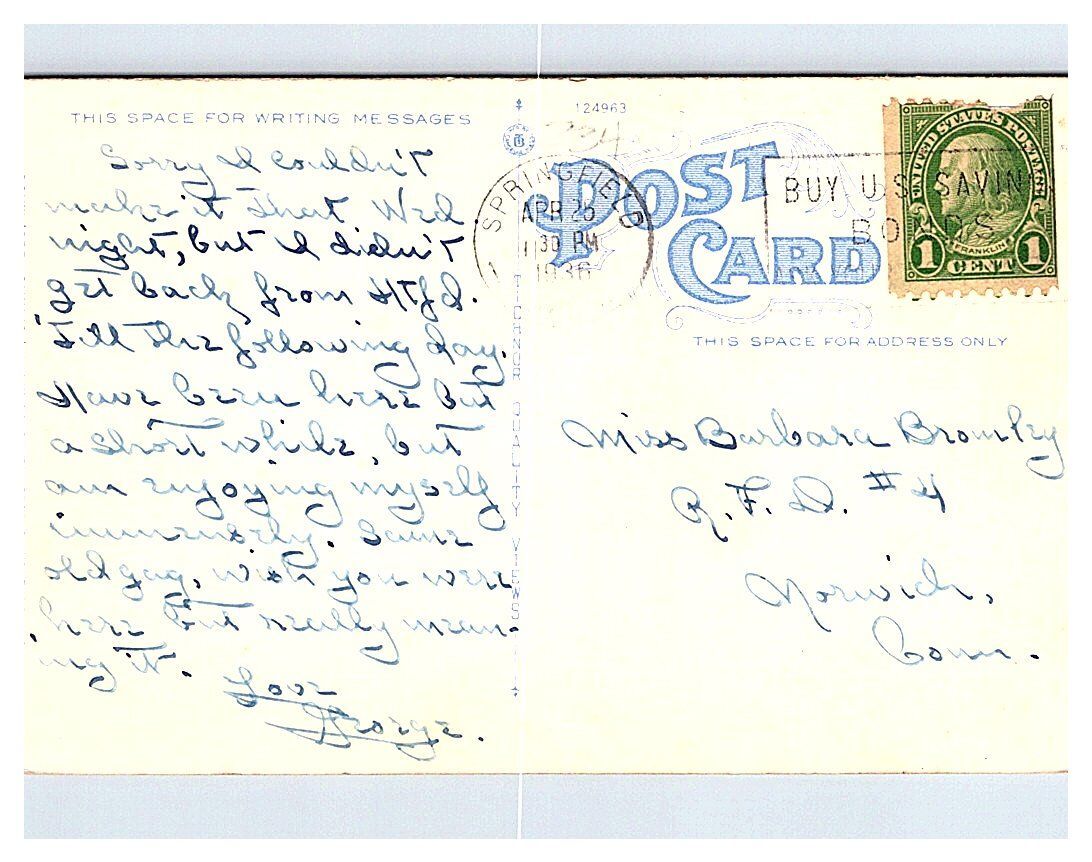 THIS SPACE FOR WRITING MESSAGES
Sorry I couldn't
make it that Wed
night, but I didn't
get back from Htfd.
'Till the following day.
Have been here but
a short while, but
am enjoying myself
immensely. Same
old gag, wish you were
here but really mean-
ing it.
Love
George.
TICHNOR QUALITY VIEWS
124963
POST
CARD
SPRINGFIELD
APR 25
30 PM
1936
BUY U.S. SAVIN
BONDS
UNITED STATES POSTAGE
FRANKLIN
1 CENT 1
THIS SPACE FOR ADDRESS ONLY
Miss Barbara Bromley
R.F.D. #4
Norwich,
Conn.